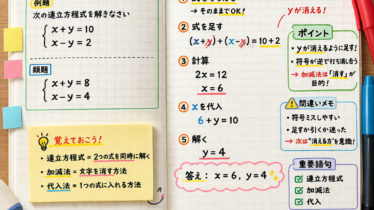 例題
次の連立方程式を解きなさい
x + y = 10
x − y = 2
類題
x + y = 8
x − y = 4
覚えておこう!
・連立方程式 = 2つの式を同時に解く
・加減法 = 文字を消す方法
・代入法 = 1つの式に入れる方法
→ そのままでOK!
② 式を足す
(x+y)+(x−y) = 10+2
yが消える!
③ 計算
2x = 12
x = 6
④ xを代入
6 + y = 10
⑤ 解く
y = 4
答え: x = 6, y = 4
ポイント
・yが消えるように足す!
・符号が逆で打ち消し合う
→ 加減法は「消す」が
目的!
間違いメモ
・符号ミスしやすい
・足すか引くか迷った
→ 次は“消える方”を意識!
重要語句
連立方程式
加減法
代入